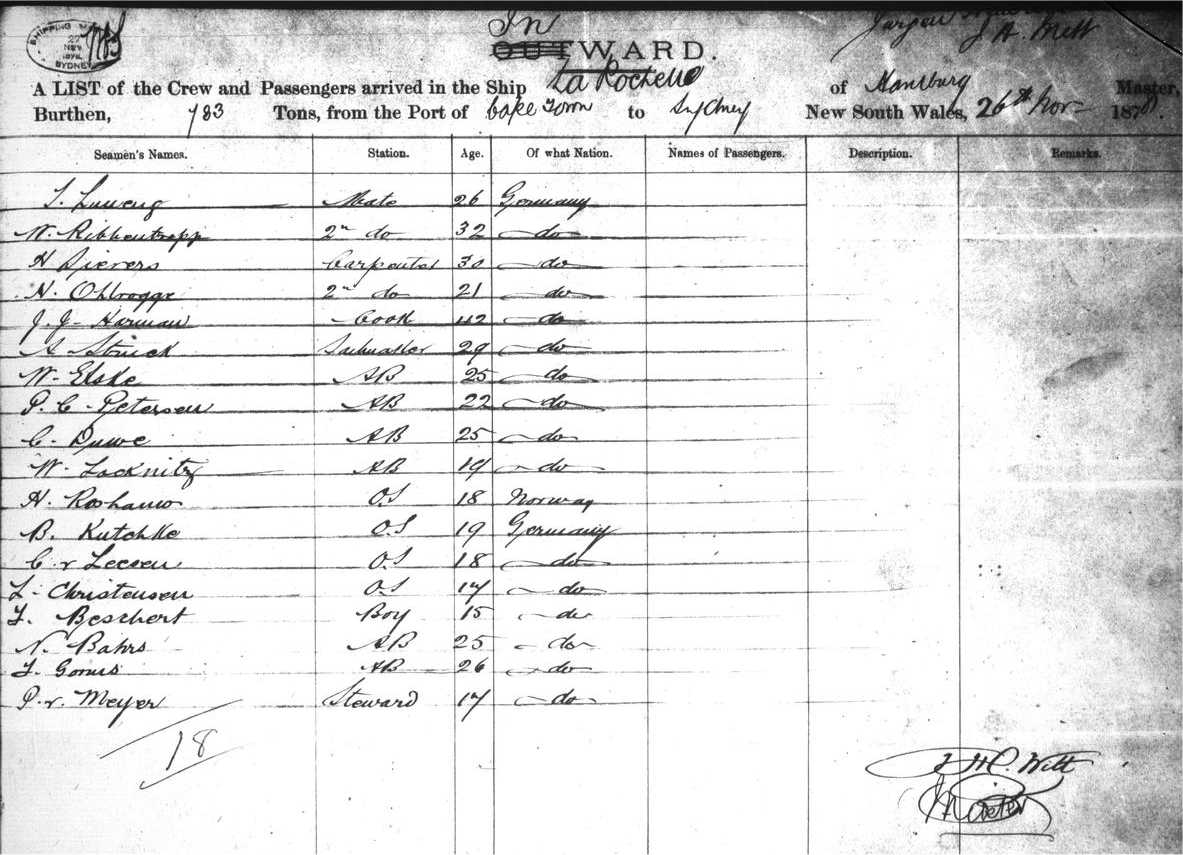 SHIPPING
27
NOV
SYDNEY
In
OUTWARD.
A LIST of the Crew and Passengers arrived in the Ship La Rochelle of Hamburg Master,
Burthen, 783 Tons, from the Port of Cape Town to Sydney New South Wales, 26th Nov 187
Seamen's Names. Station. Age. Of what Nation. Names of Passengers. Description. Remarks.
Mate 26 Germany
W. Ribbentropp 2n do 32 do
H Sievers Carpenter 30 do
H. Ohlrogge 2n do 21 do
J. J. Harman Cook 42 do
A Struck Sailmaker 29 do
W. Elske AB 25 do
P. C. Petersen AB 22 do
C. Duwe AB 25 do
W. Lacknitz AB 19 do
H. 18 Norway
B. Kutchke O.S 19 Germany
C. v Leesen O.S 18 do
L. Christensen O.S 17 do
F. Beschert Boy 15 do
N. Bahrs AB 25 do
AB 26 do
P. v. Meyer Steward 17 do
18
Witt